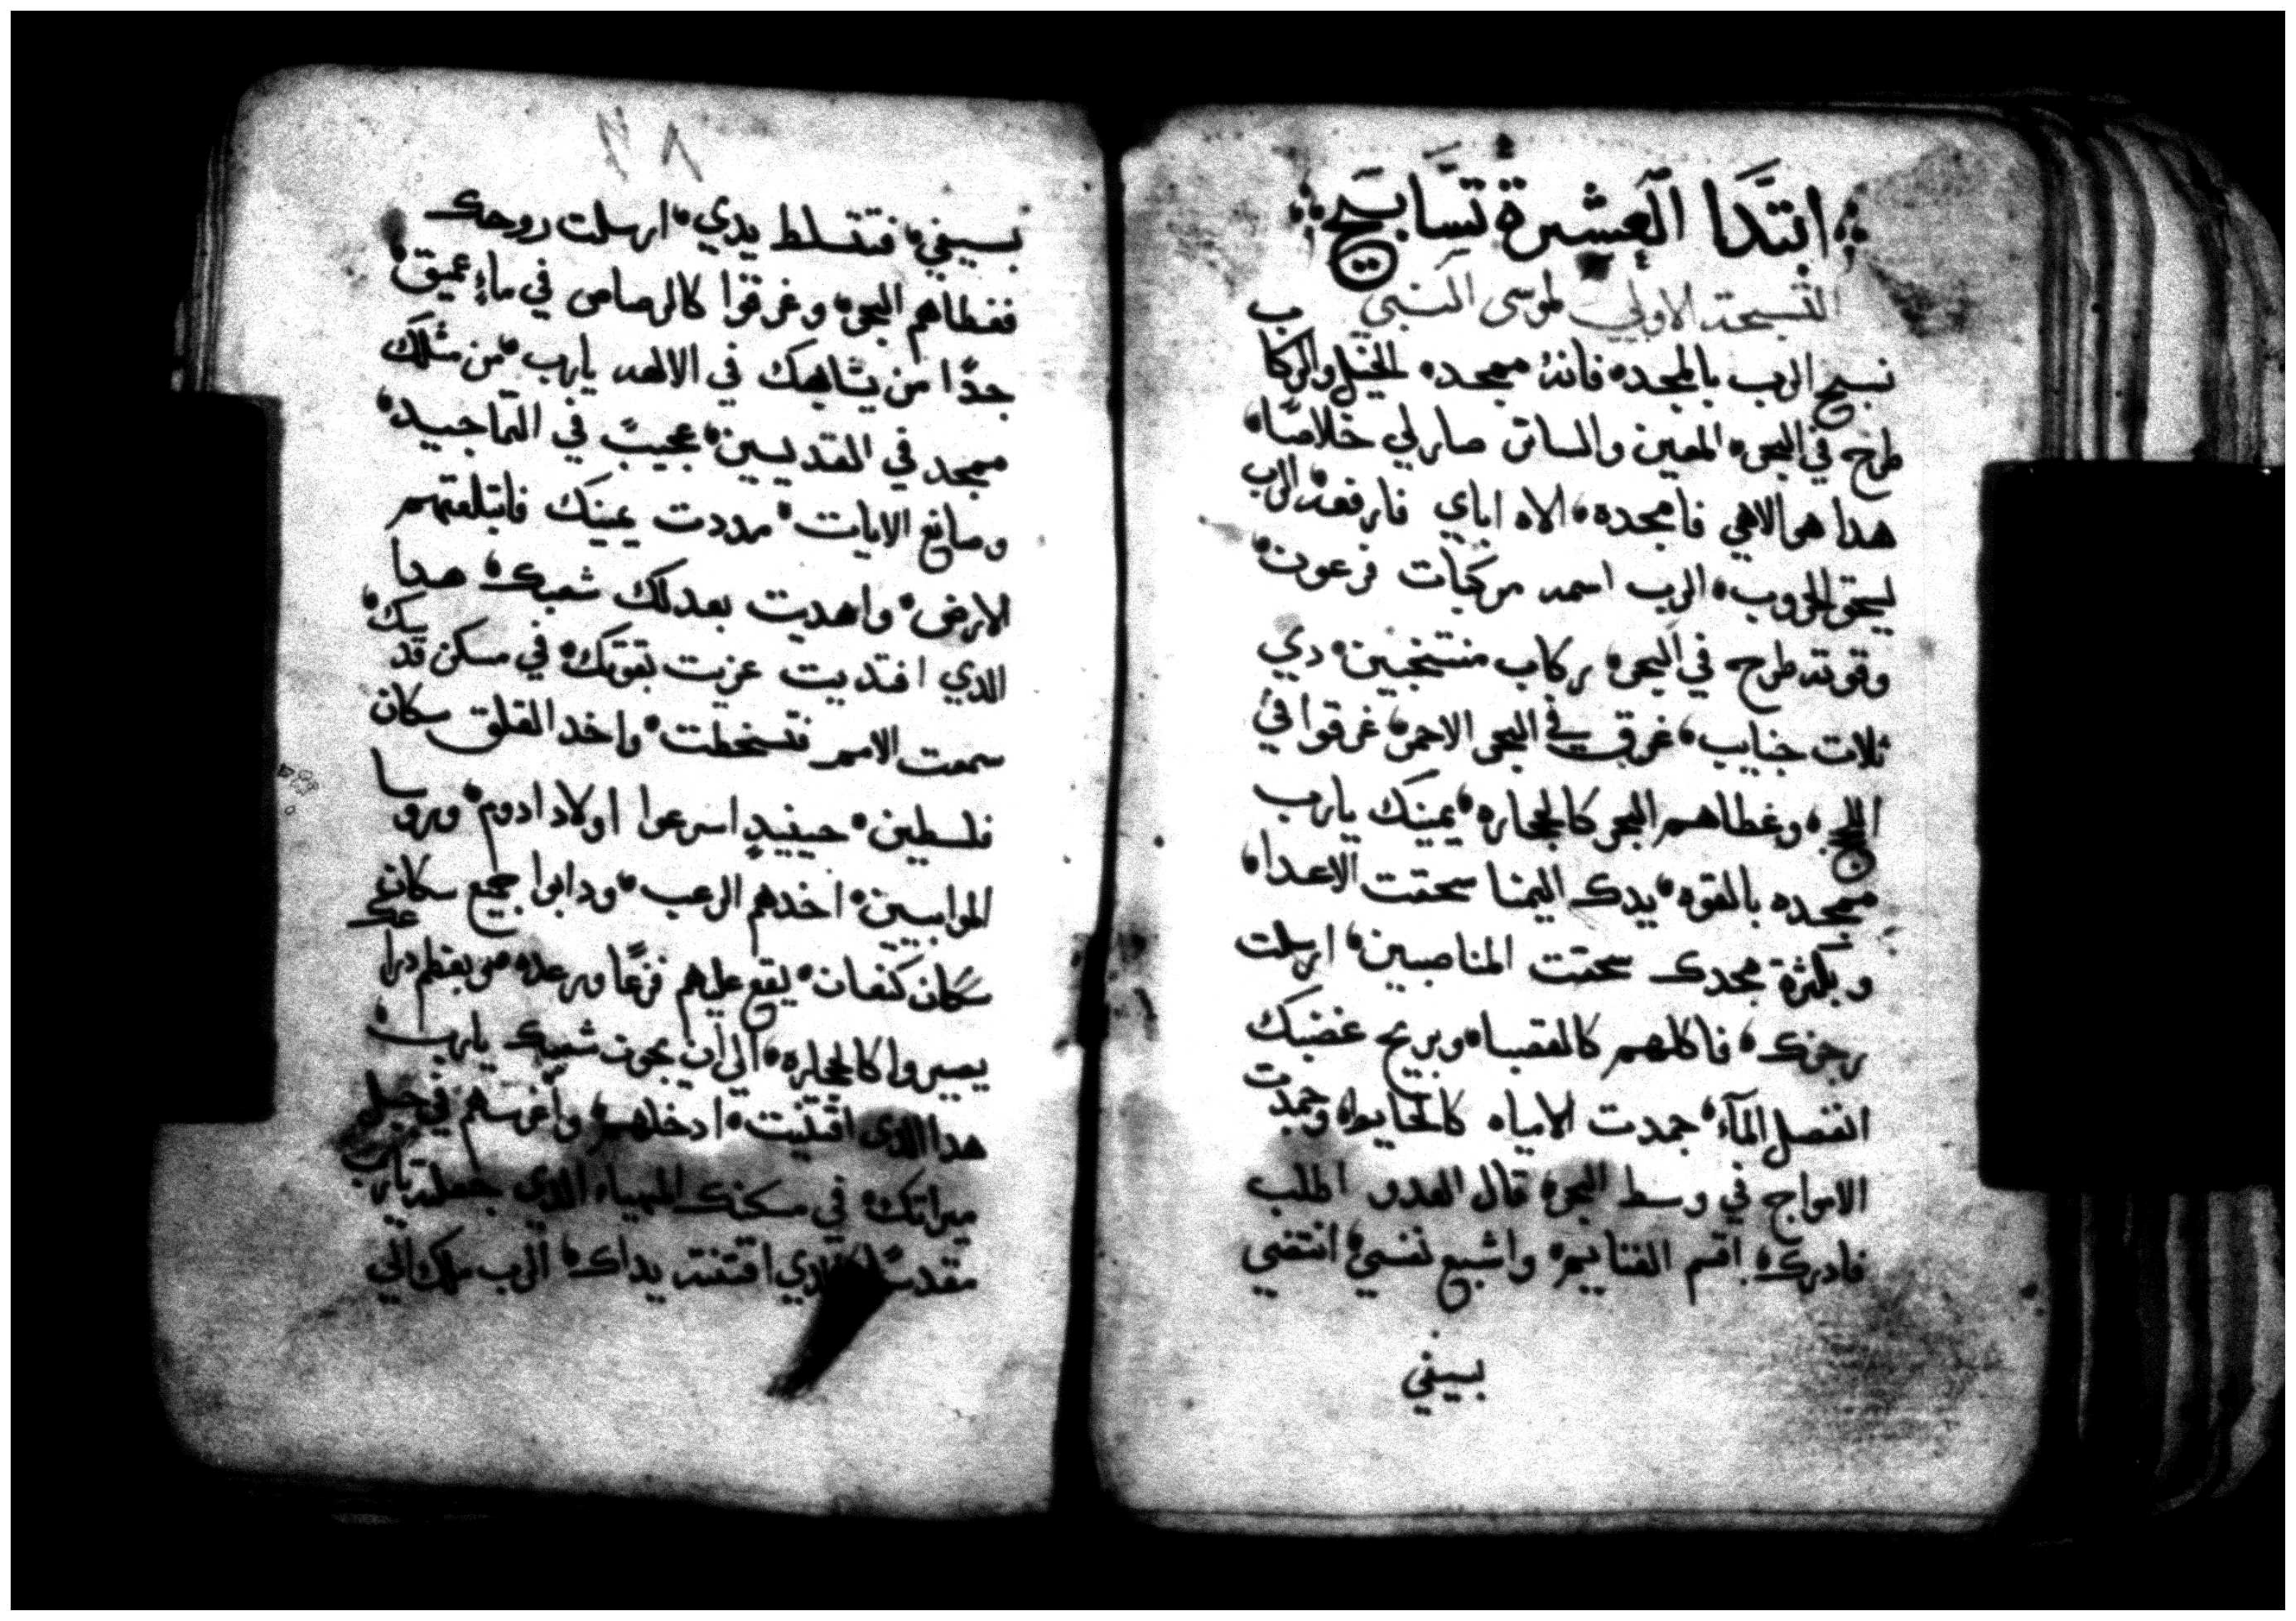 ابتدا العشرة تسابيح
التسبحة الاولي لموسى النبي
نسبح الرب بالمجد فانه ممجد الخيل والركاب
طرح في البحر المعين والساتر صار لي خلاصًا
هدا هو الاهي فامجده الاه اباي فارفعه الرب
يسحق الحروب الرب اسمه مركبات فرعون
وقوته طرح في البحر ركاب منتخبين دي
ثلات جنايب غرق في البحر الاحمر غرقوا في
اللج وغطاهم البحر كالحجاره يمينك يارب
ممجده بالقوه يدك اليمنا سحقت الاعدا
وبكثرة مجدك سحقت المناصبين ارسلت
رجزك فاكلهم كالقصبا وبريح غضبك
انفصل المآء جمدت الامياه كالحايط وجمدت
الامواج في وسط البحر قال العدو اطلب
فادرك اقسم الغنايم واشبع نفسي انتضي
بسيفي
٢٨
بسيفي فتتسلط يدي ارسلت روحك
فغطاهم البحر وغرقوا كالرصاص في ماءٍ عميق
جدًا من يشابهك في الالهه يارب من مثلك
ممجد في القديسين عجيبً في التماجيد
وصانع الايات مددت يمينك فابتلعتهم
الارض واهديت بعدلك شعبك هدا
الدي افتديت عزيت بقوتك في مسكن قدسك
سمعت الامم فتسخطت واخد القلق سكان
فلسطين حينيدٍ اسرعوا اولاد ادوم وروسا
الموابيين اخدهم الرعب ودابوا جميع سكان
سكان كنعان يقع عليهم فزعًا ورعده من بعظم دراعك
يصيروا كالحجاره الي ان يجوز شعبك يارب
هدا الدي اقتنيت ادخلهم واغرسهم في جبل
ميراتك في مسكنك المهياه الدي جعلته يارب
مقدسًا الدي اقتنته يداك الرب يملك الي